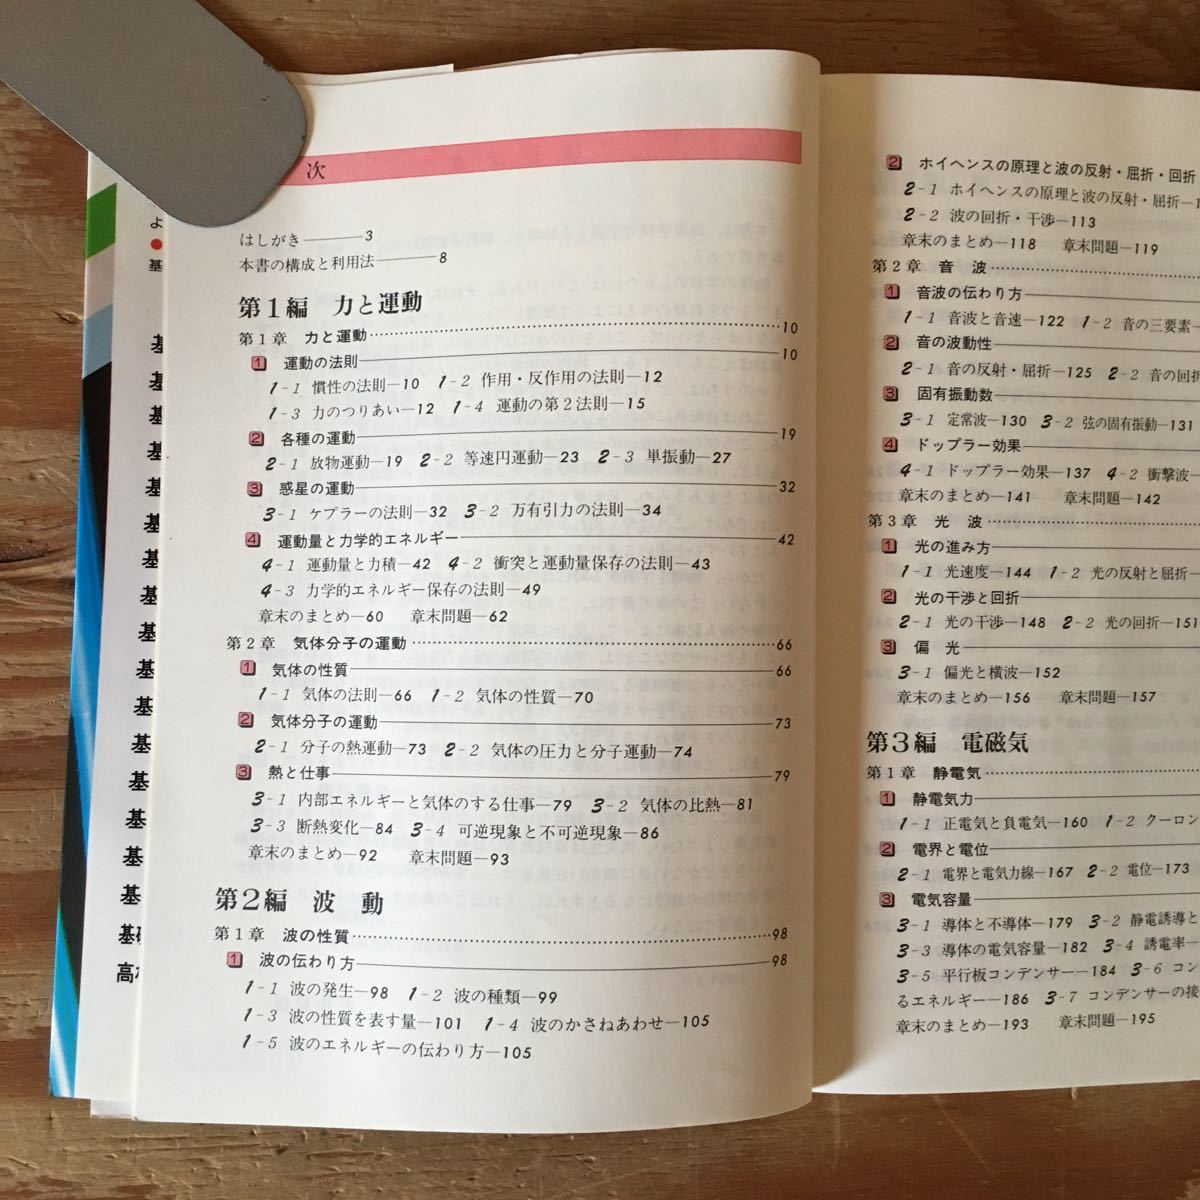 次
はしがき―――3
本書の構成と利用法――8
第1編 力と運動
第1章 力と運動……10
1 運動の法則――10
1-1 慣性の法則―10 1-2 作用・反作用の法則―12
1-3 力のつりあい―12 1-4 運動の第2法則―15
2 各種の運動――19
2-1 放物運動―19 2-2 等速円運動―23 2-3 単振動―27
3 惑星の運動――32
3-1 ケプラーの法則―32 3-2 万有引力の法則―34
4 運動量と力学的エネルギー――42
4-1 運動量と力積―42 4-2 衝突と運動量保存の法則―43
4-3 力学的エネルギー保存の法則―49
章末のまとめ―60 章末問題―62
第2章 気体分子の運動……66
1 気体の性質――66
1-1 気体の法則―66 1-2 気体の性質―70
2 気体分子の運動――73
2-1 分子の熱運動―73 2-2 気体の圧力と分子運動―74
3 熱と仕事――79
3-1 内部エネルギーと気体のする仕事―79 3-2 気体の比熱―81
3-3 断熱変化―84 3-4 可逆現象と不可逆現象―86
章末のまとめ―92 章末問題―93
第2編 波 動
第1章 波の性質……98
1 波の伝わり方――98
1-1 波の発生―98 1-2 波の種類―99
1-3 波の性質を表す量―101 1-4 波のかさねあわせ―105
1-5 波のエネルギーの伝わり方―105
2 ホイヘンスの原理と波の反射・屈折・回折
2-1 ホイヘンスの原理と波の反射・屈折―
2-2 波の回折・干渉―113
章末のまとめ―118 章末問題―119
第2章 音 波……
1 音波の伝わり方――
1-1 音波と音速―122 1-2 音の三要素―
2 音の波動性――
2-1 音の反射・屈折―125 2-2 音の回折
3 固有振動数――
3-1 定常波―130 3-2 弦の固有振動―131
4 ドップラー効果――
4-1 ドップラー効果―137 4-2 衝撃波―
章末のまとめ―141 章末問題―142
第3章 光 波……
1 光の進み方――
1-1 光速度―144 1-2 光の反射と屈折―
2 光の干渉と回折――
2-1 光の干渉―148 2-2 光の回折―151
3 偏 光――
3-1 偏光と横波―152
章末のまとめ―156 章末問題―157
第3編 電磁気
第1章 静電気……
1 静電気力――
1-1 正電気と負電気―160 1-2 クーロン
2 電界と電位――
2-1 電界と電気力線―167 2-2 電位―173
3 電気容量――
3-1 導体と不導体―179 3-2 静電誘導と
3-3 導体の電気容量―182 3-4 誘電率―
3-5 平行板コンデンサー―184 3-6 コン
るエネルギー―186 3-7 コンデンサーの接
章末のまとめ―193 章末問題―195
よ
基
基
基
基
基
基
基
基
基
基
基
基
基
基
基
基
基
基
高